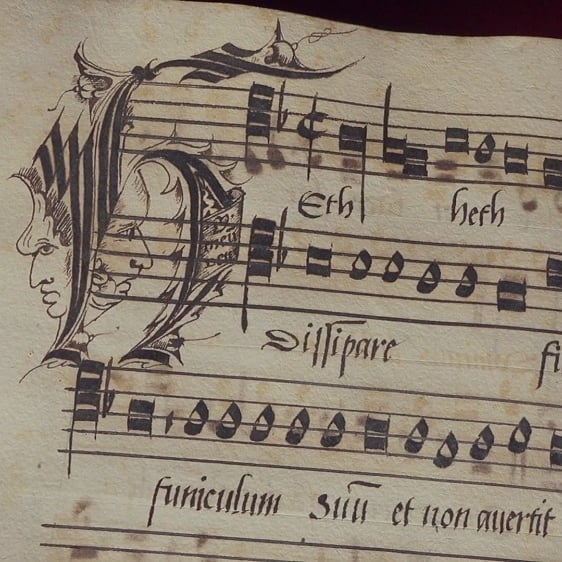 H Eth heth
Dissipare fi
funiculum suū et non auertit